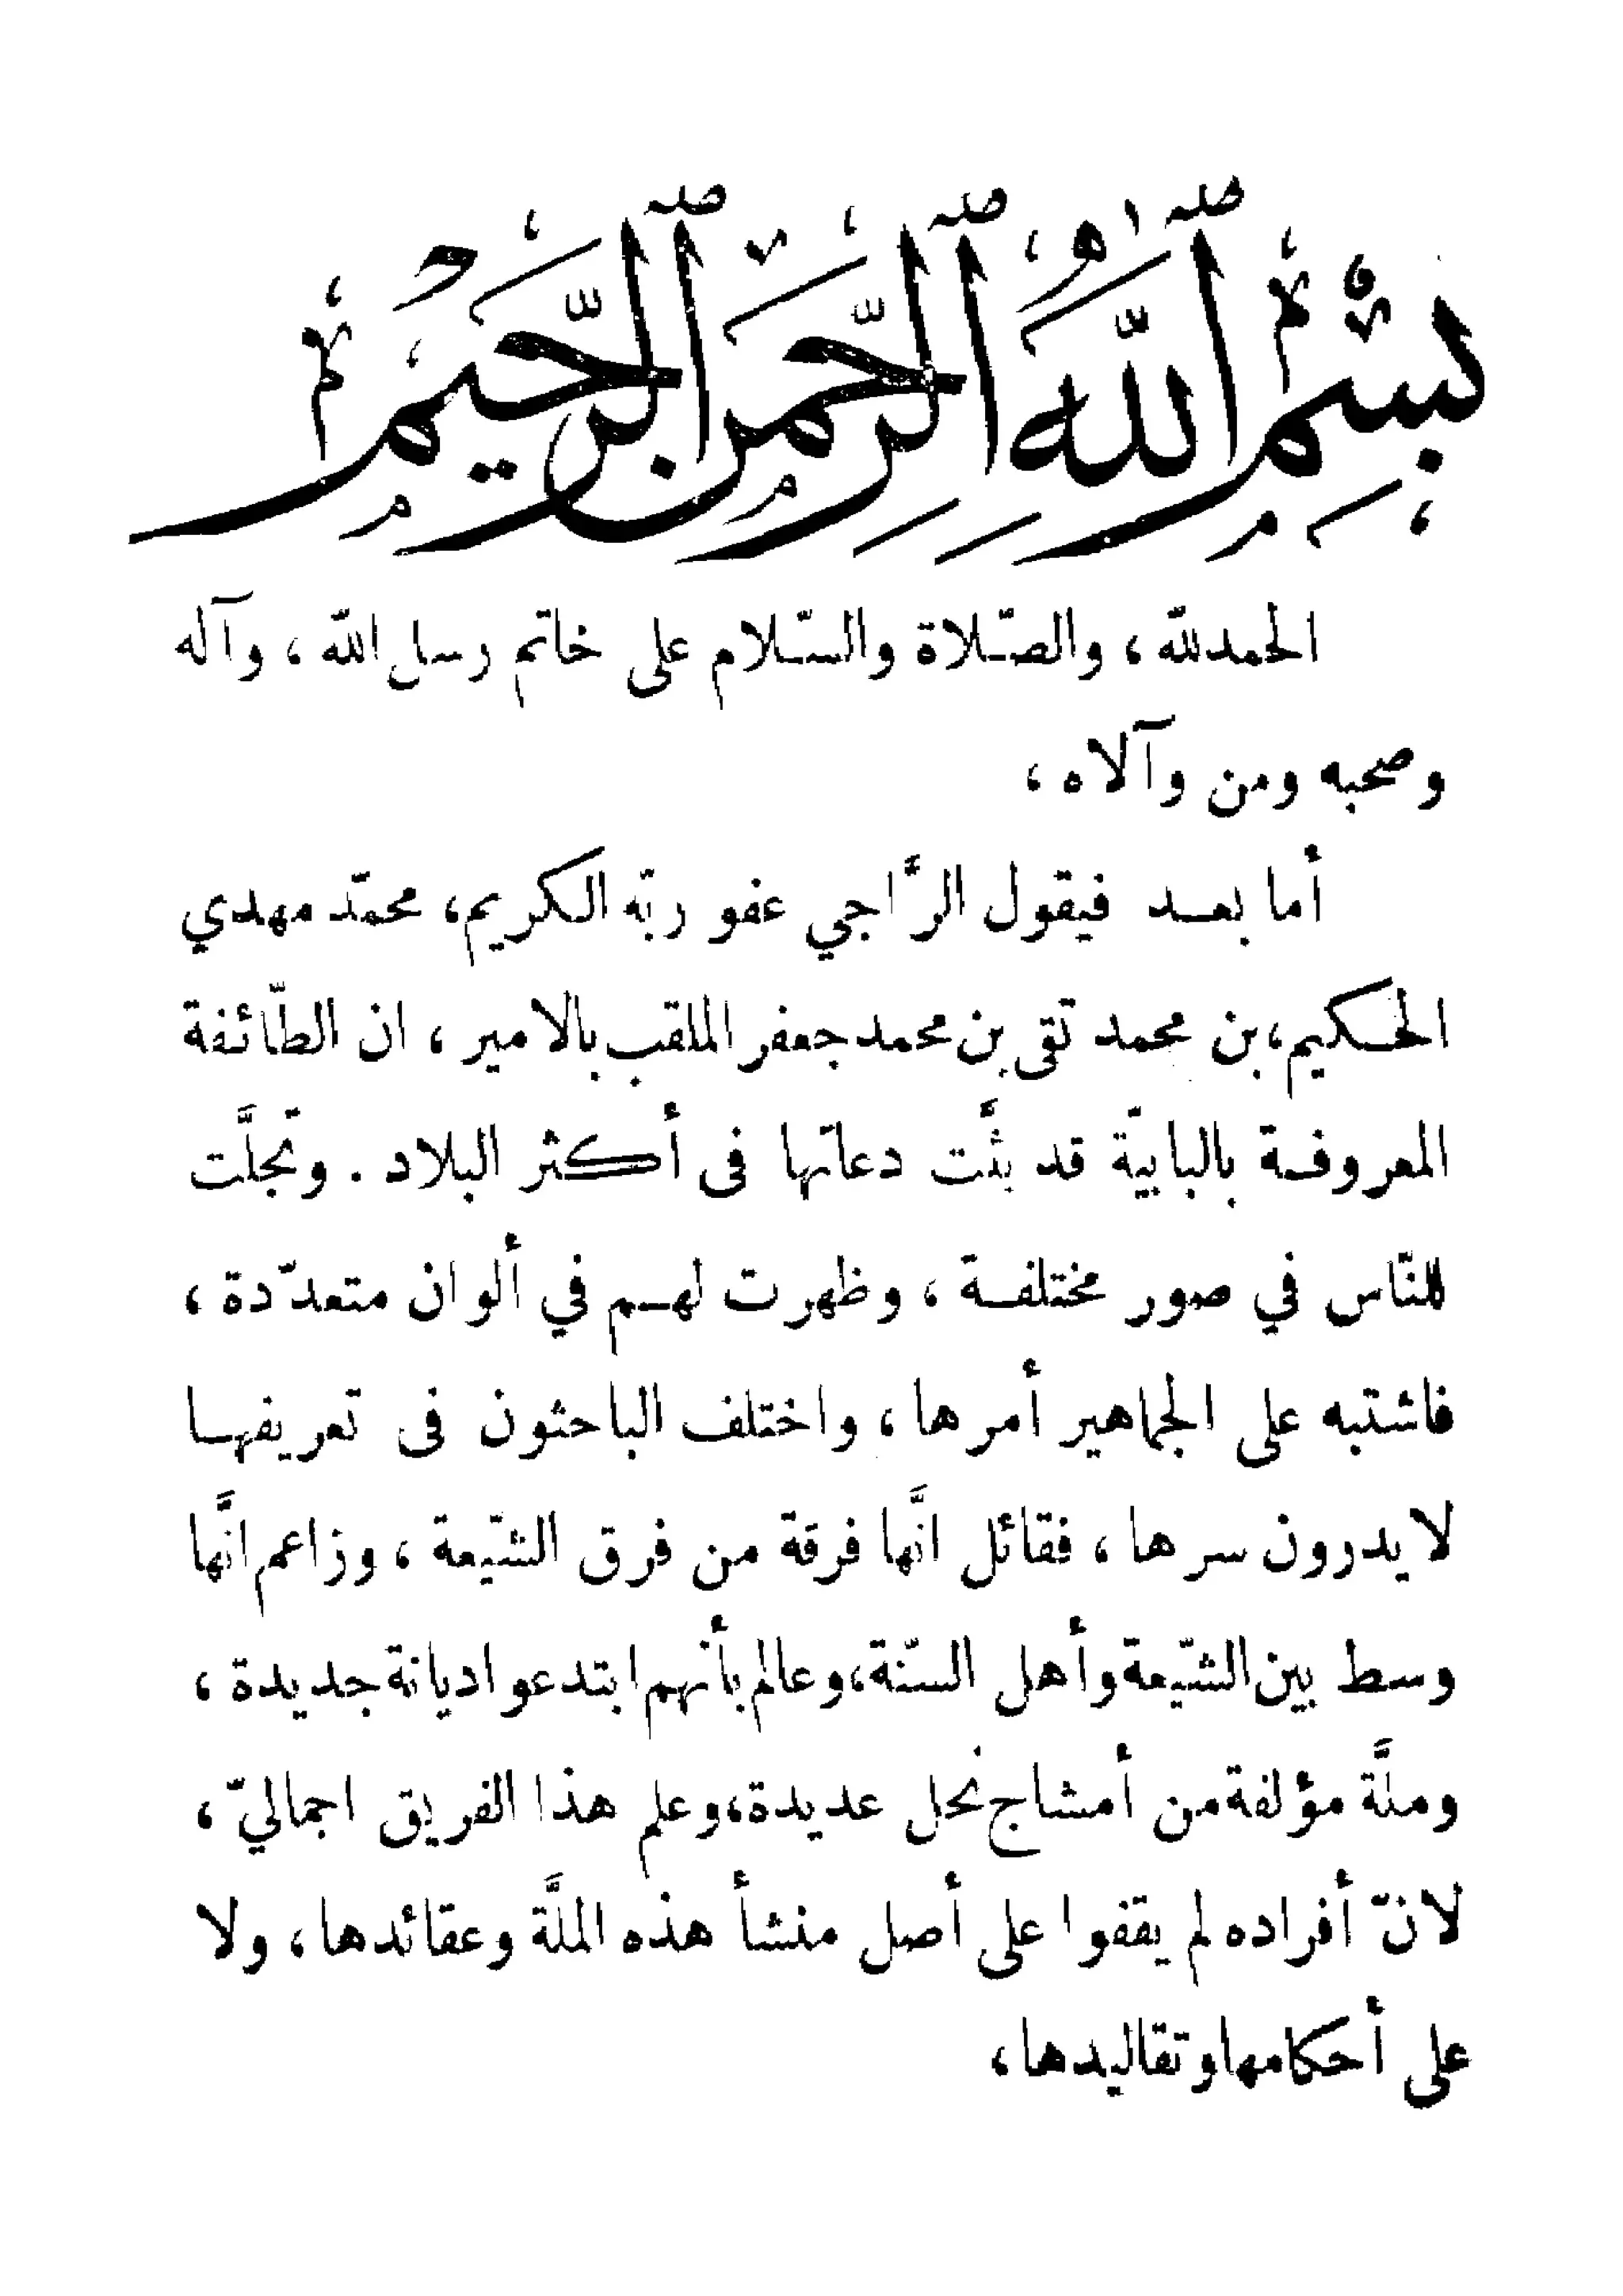 بِسْمِ ٱللَّهِ ٱلرَّحْمَنِ ٱلرَّحِيمِ
الحمدلله ، والصّلاة والسّلام على خاتم رسل الله ، وآله
وصحبه ومن وآلاه ،
أما بعد فيقول الرَّاجي عفو ربّه الكريم، محمّد مهدي
الحكيم،بن محمد تقى بن محمد جعفر الملقب بالامير ، ان الطّائفة
المعروفة بالبابيّة قد بثَّت دعاتها فى أكثر البلاد . وتجلَّت
للنّاس في صور مختلفة ، وظهرت لهم في ألوان متعدّدة ،
فاشتبه على الجماهير أمرها ، واختلف الباحثون فى تعريفها
لا يدرون سرها ، فقائل انَّها فرقة من فرق الشّيعة ، وزاعم انَّها
وسط بين الشّيعة وأهل السّنة،وعالم بأنهم ابتدعوا ديانة جديدة ،
وملَّة مؤلفة من أمشاج نحل عديدة،وعلم هذا الفريق اجماليّ ،
لانّ أفراده لم يقفوا على أصل منشأ هذه الملَّة وعقائدها ، ولا
على أحكامها وتقاليدها ،